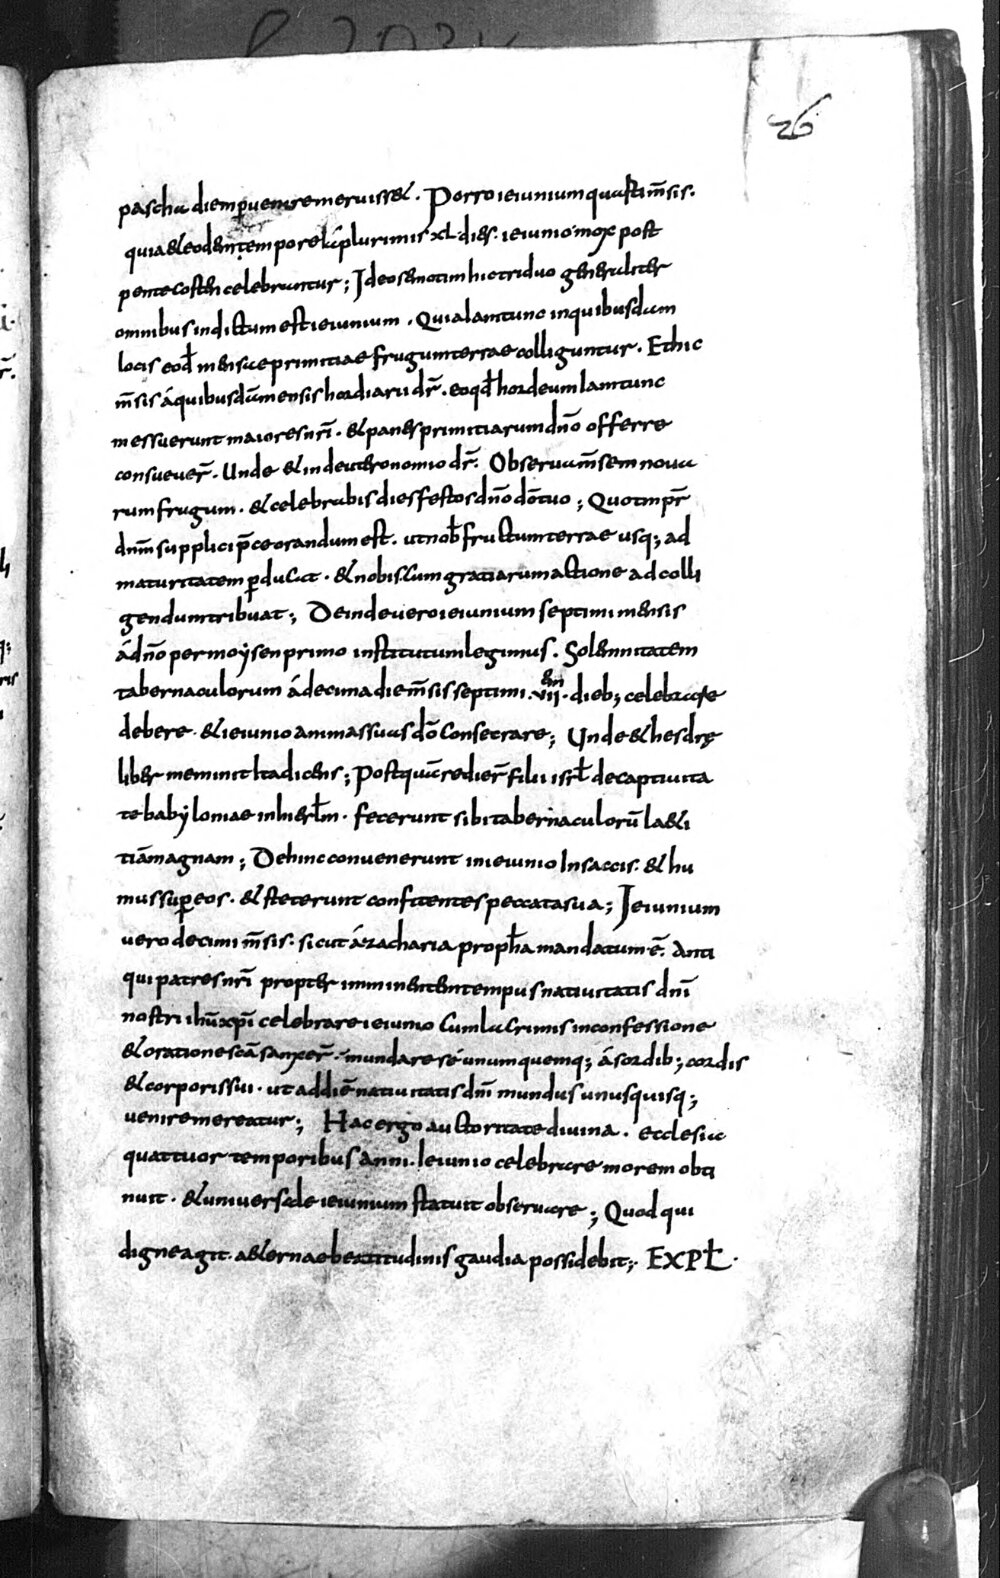 26
pascha diem p̱uenire meruisset. Porro ieiunium quarti m̄sis.
quia et eodem tempore licet plurimis xl. dies. ieiunio mox post
pentecosten celebrantur; Ideo semotim hic triduo generaliter
omnibus indictum est ieiunium. Quia iam tunc in quibusdam
locis eod̄ mense primitiae frugum terrae colliguntur. Et hic
m̄sis á quibusdā mensis hordiarii dr̄. eo qd̄ hordeum iam tunc
messuerunt maiores nr̄i. et panes primitiarum dn̄o offerre
consueuer̄. Unde et in deutheronomio dr̄. Obserua m̄sem noua
rum frugum. et celebrabis dies festos dn̄o dō tuo; Quo temp̄r
dn̄m supplici p̄ce orandum est. ut nob̄ fructum terrae usq; ad
maturitatem p̱ducat. et nobis cum gratiarum actione ad colli
gendum tribuat; Deinde uero ieiunium septimi mensis
á dn̄o per moysen primo institutum legimus. Solemnitatem
tabernaculorum á decima die m̄sis septimi. vii. dieb; celebrare
debere. et ieiunio animas suas dō consecrare; Unde et hesdrę
liber meminit ita dicens; Postquā redier̄ filii isrl̄ de captiuita
te babyloniae in hierl̄m. fecerunt sibi tabernaculorū laeti
tiā magnam; Dehinc conuenerunt in ieiunio In saccis. et hu
mus sup̱ eos. et steterunt confitentes peccata sua; Ieiunium
uero decimi m̄sis. sicut á zacharia proph̄a mandatum ē. Anti
qui patres nr̄i propter imminentem tempus natiuitatis dn̄i
nostri ihū xp̄i celebrare ieiunio Cum lacrimis in confessione
et oratione scā sanxer̄. mundare sé unumquemq; á sordib; cordis
et corporis sui. ut ad diē natiuitatis dn̄i mundus unusquisq;
uenire mereatur; Hac ergo auctoritate diuina. ecclesia
quattuor temporibus anni. Ieiunio celebrare morem obti
nuit. et uniuersale ieiunium statuit obseruare; Quod qui
digne agit. aeternae beatitudinis gaudia possidebit; EXPL̄.